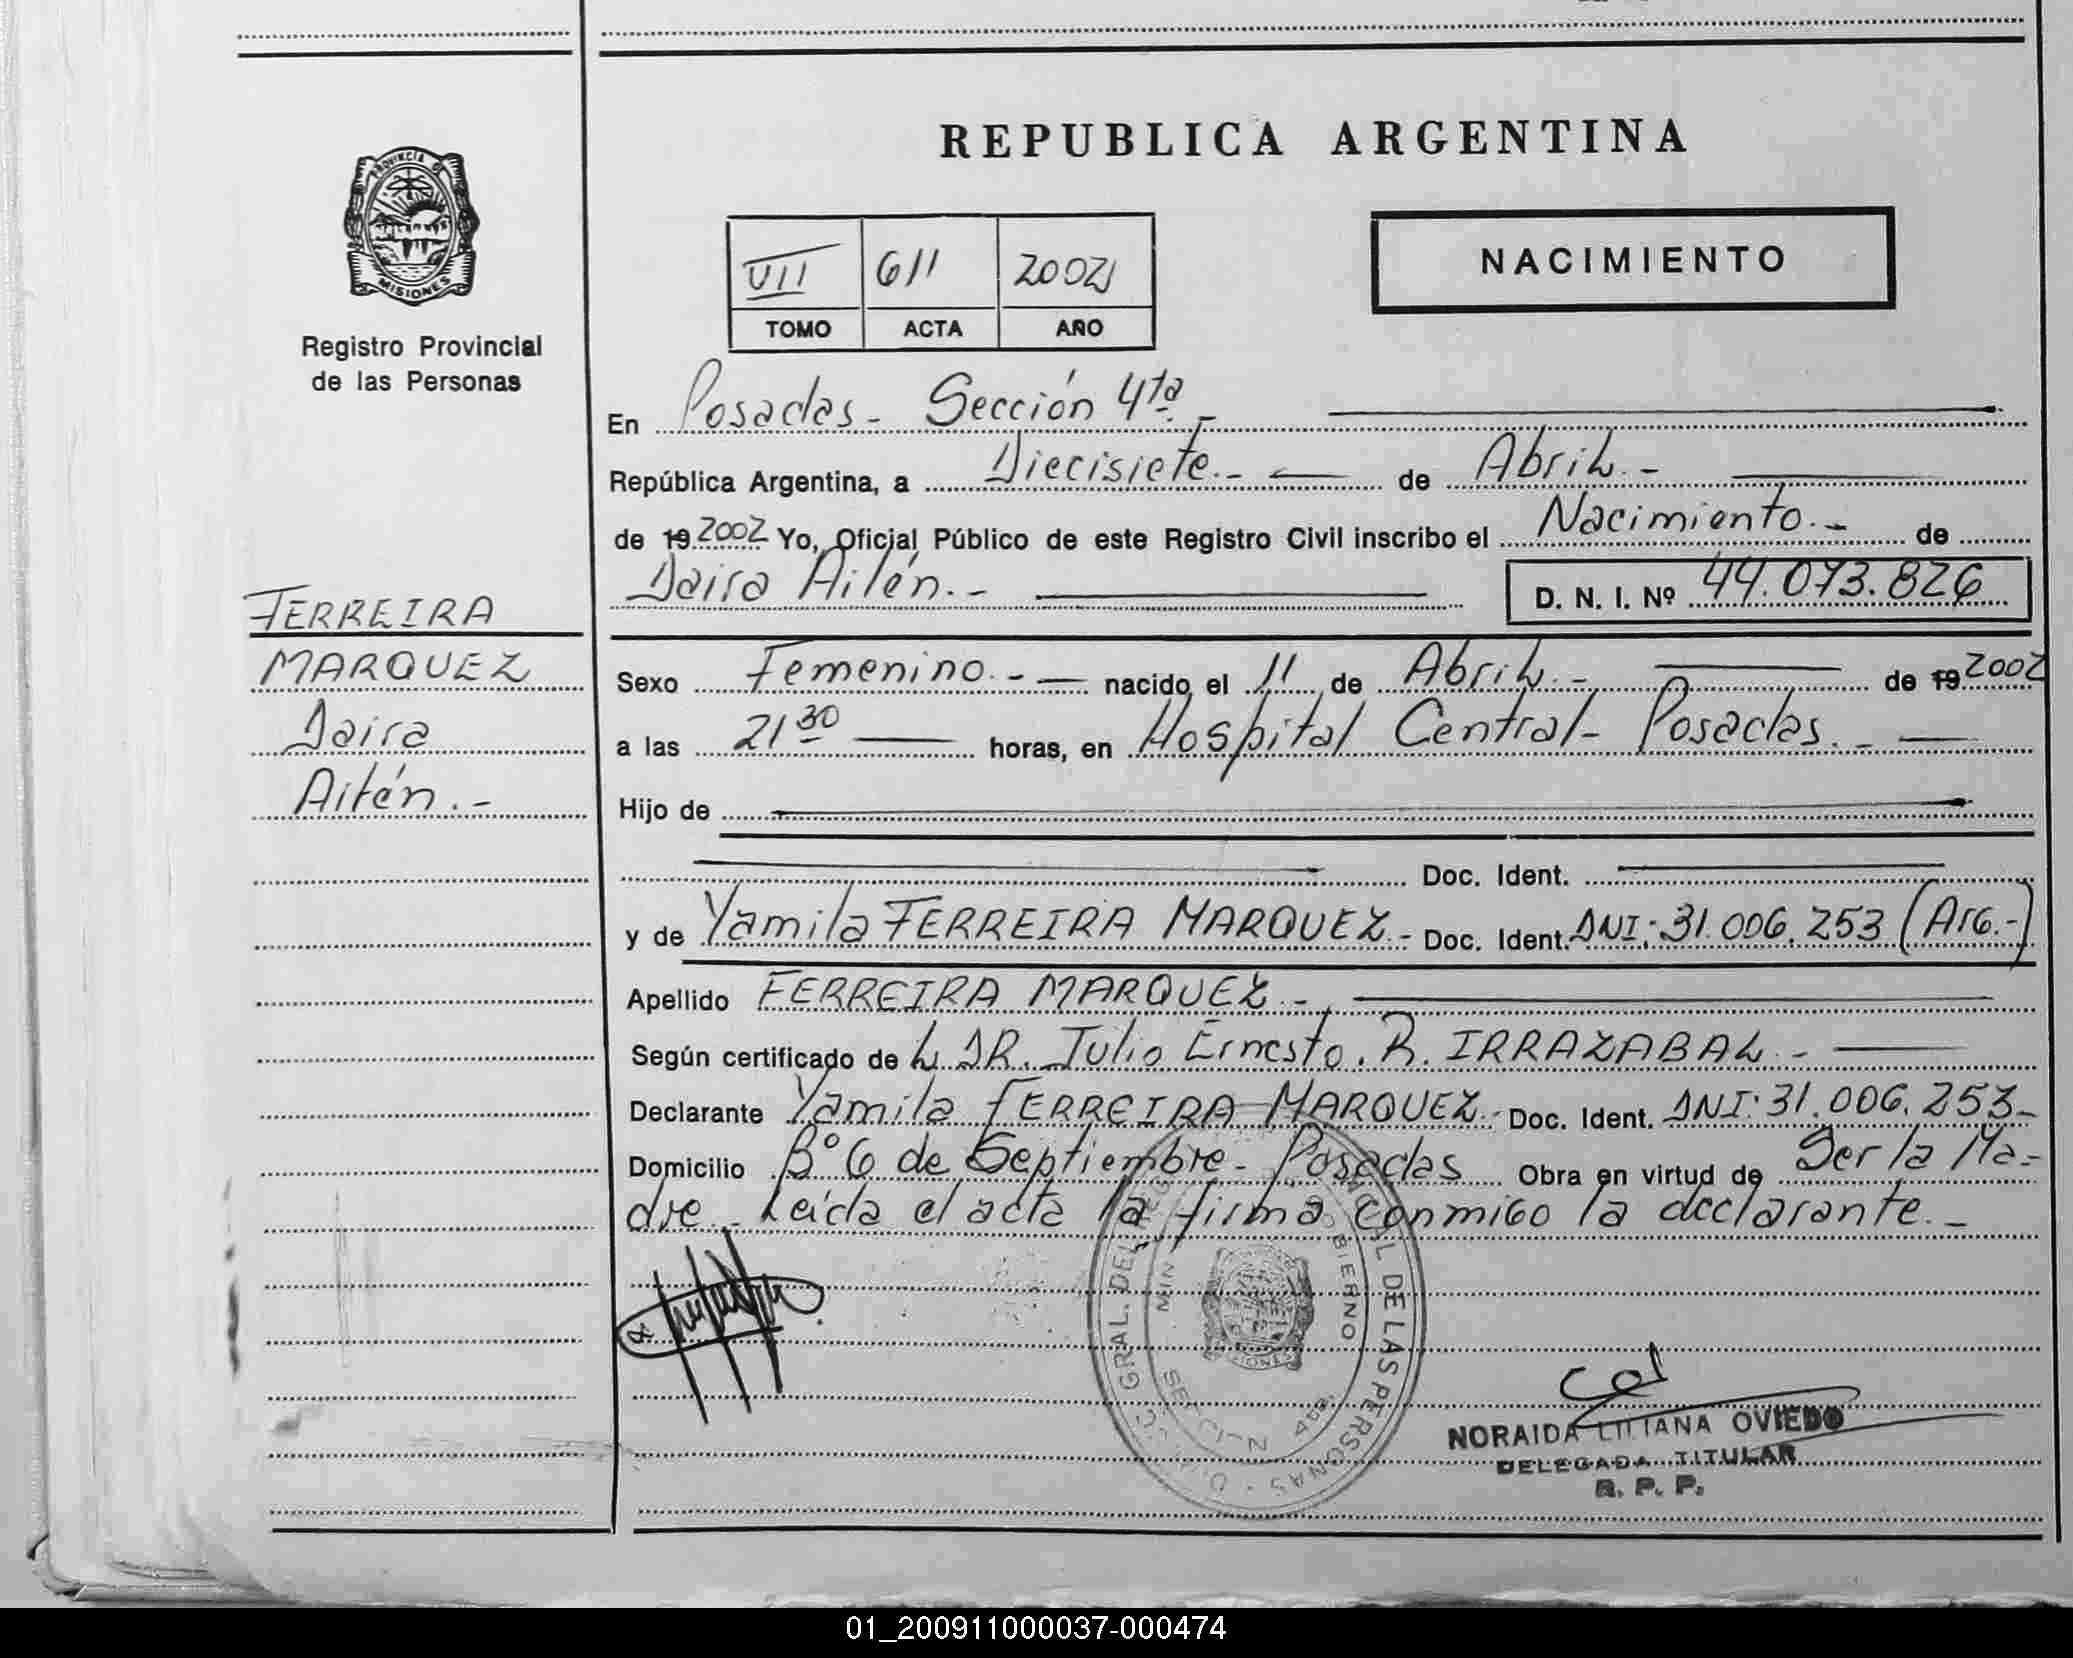 REPUBLICA ARGENTINA
PROVINCIA DE
MISIONES
Registro Provincial
de las Personas
VII 611 2002
TOMO ACTA AÑO
NACIMIENTO
En Posadas- Sección 4ta-
República Argentina, a Diecisiete.- de Abril.-
de 19 2002 Yo, Oficial Público de este Registro Civil inscribo el Nacimiento.- de
Daira Ailén.- D. N. I. Nº 44.073.826
FERREIRA
MARQUEZ
Daira
Ailén.-
Sexo Femenino.- nacido el 11 de Abril.- de 19 2002
a las 21 30 horas, en Hospital Central- Posadas.-
Hijo de
Doc. Ident.
y de Yamila FERREIRA MARQUEZ.- Doc. Ident. DNI: 31.006.253 (Arg.-)
Apellido FERREIRA MARQUEZ.-
Según certificado de L DR. Julio Ernesto. R. IRRAZABAL.-
Declarante Yamila FERREIRA MARQUEZ.- Doc. Ident. DNI: 31.006.253-
Domicilio Bº 6 de Septiembre- Posadas Obra en virtud de Ser la Ma-
dre.- Leída el acta la firma conmigo la declarante.-
GRAL. DEL REG. PROVINCIAL DE LAS PERSONAS
GOBIERNO
NORAIDA LILIANA OVIEDO
DELEGADA TITULAR
R. P. P.
01_200911000037-000474